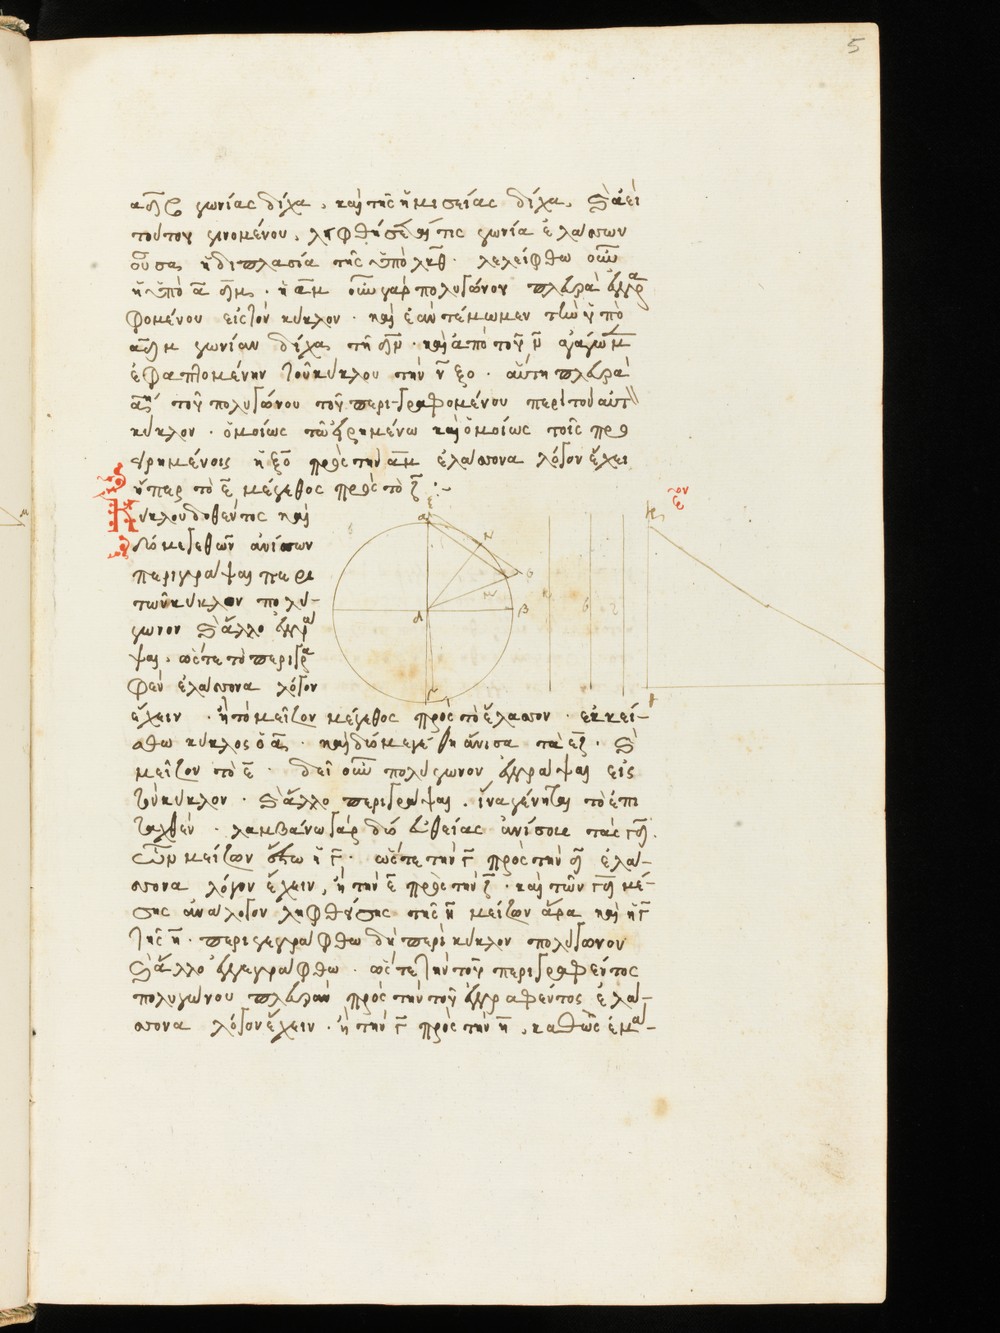 5
αηβ γωνίας δίχα, καὶ τῆς ἡμισείας δίχα, καὶ ἀεὶ
τούτου γινομένου, ληφθήσεταί τις γωνία ἐλάσσων
οὖσα ἢ διπλασία τῆς ὑπὸ λκθ. λελείφθω οὖν
ἡ ὑπὸ αημ. ἡ αμ οὖν γὰρ πολυγώνου πλευρὰ ἐγγρα
φομένου εἰς τὸν κύκλον. καὶ ἐὰν τέμωμεν τὴν ὑπὸ
αημ γωνίαν δίχα τῇ ην. καὶ ἀπὸ τοῦ ν ἀγάγωμεν
ἐφαπτομένην τοῦ κύκλου τὴν νξο. αὕτη πλευρὰ
τοῦ πολυγώνου τοῦ περιγραφομένου περὶ τὸν αὐτὸν
κύκλον. ὁμοίως τῷ εἰρημένῳ καὶ ὁμοίως τοῖς προ
ειρημένοις ἡ ξο πρὸς τὴν αμ ἐλάσσονα λόγον ἔχει
ἤπερ τὸ ε μέγεθος πρὸς τὸ ζ :~
Κύκλου δοθέντος καὶ
δύο μεγεθῶν ἀνίσων
περιγράψαι περὶ
τὸν κύκλον πολύ-
γωνον καὶ ἄλλο ἐγγρά
ψαι. ὥστε τὸ περιγρα
φὲν ἐλάσσονα λόγον
ἔχειν. ἢ τὸ μεῖζον μέγεθος πρὸς τὸ ἔλασσον. ἐκκεί-
σθω κύκλος ὁ α. καὶ δύο μεγέθη ἄνισα τὰ εζ. καὶ
μεῖζον τὸ ε. δεῖ οὖν πολύγωνον ἐγγράψαι εἰς
τὸν κύκλον. καὶ ἄλλο περιγράψαι. ἵνα γένηται τὸ ἐπι
ταχθέν. λαμβάνω γὰρ δύο εὐθείας ἀνίσους τὰς γδ.
ὧν μείζων ἔστω ἡ γ. ὥστε τὴν γ πρὸς τὴν δ ἐλά-
σσονα λόγον ἔχειν, ἢ τὴν ε πρὸς τὴν ζ. καὶ τῶν γδ μέ-
σης ἀνάλογον ληφθείσης τῆς η μείζων ἄρα καὶ ἡ γ
τῆς η. περιγεγράφθω δὴ περὶ κύκλον πολύγωνον
καὶ ἄλλο ἐγγεγράφθω. ὥστε τὴν τοῦ περιγραφέντος
πολυγώνου πλευρὰν πρὸς τὴν τοῦ ἐγγραφέντος ἐλά-
σσονα λόγον ἔχειν. ἢ τὴν γ πρὸς τὴν η, καθὼς ἐμά-